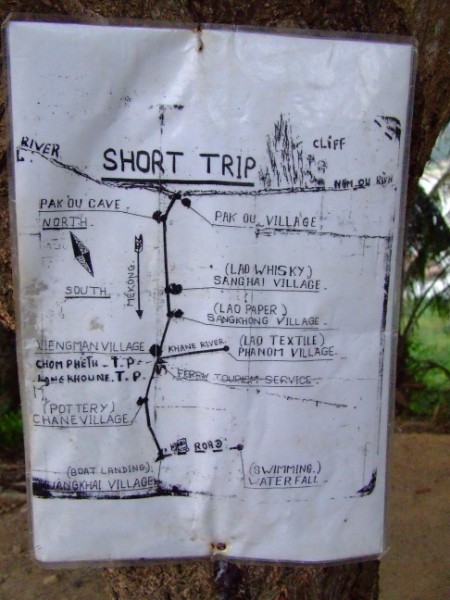 RIVER
SHORT TRIP
CLIFF
NOM OU RIVER
PAK OU CAVE
PAK OU VILLAGE
NORTH
SOUTH
MEKONG
(LAO WHISKY)
SANGHAI VILLAGE
(LAO PAPER)
SANGKHONG VILLAGE
VIENGMAN VILLAGE
KHANE RIVER
(LAO TEXTILE)
PHANOM VILLAGE
CHOM PHETH - T.P
LONG KHOUNE. T.P.
FERRY TOURISM SERVICE
(POTTERY)
CHANE VILLAGE
ROAD
(BOAT LANDING)
VILLAGE
(SWIMMING.)
WATERFALL